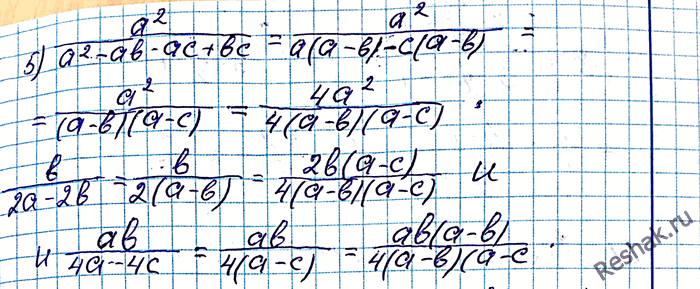 5) a²/(a²-ab-ac+bc) = a²/(a(a-b)-c(a-b)) =
= a²/((a-b)(a-c)) = 4a²/(4(a-b)(a-c)) ;
b/(2a-2b) = b/(2(a-b)) = 2b(a-c)/(4(a-b)(a-c)) и
и ab/(4a-4c) = ab/(4(a-c)) = ab(a-b)/(4(a-b)(a-c .
Reshak.ru